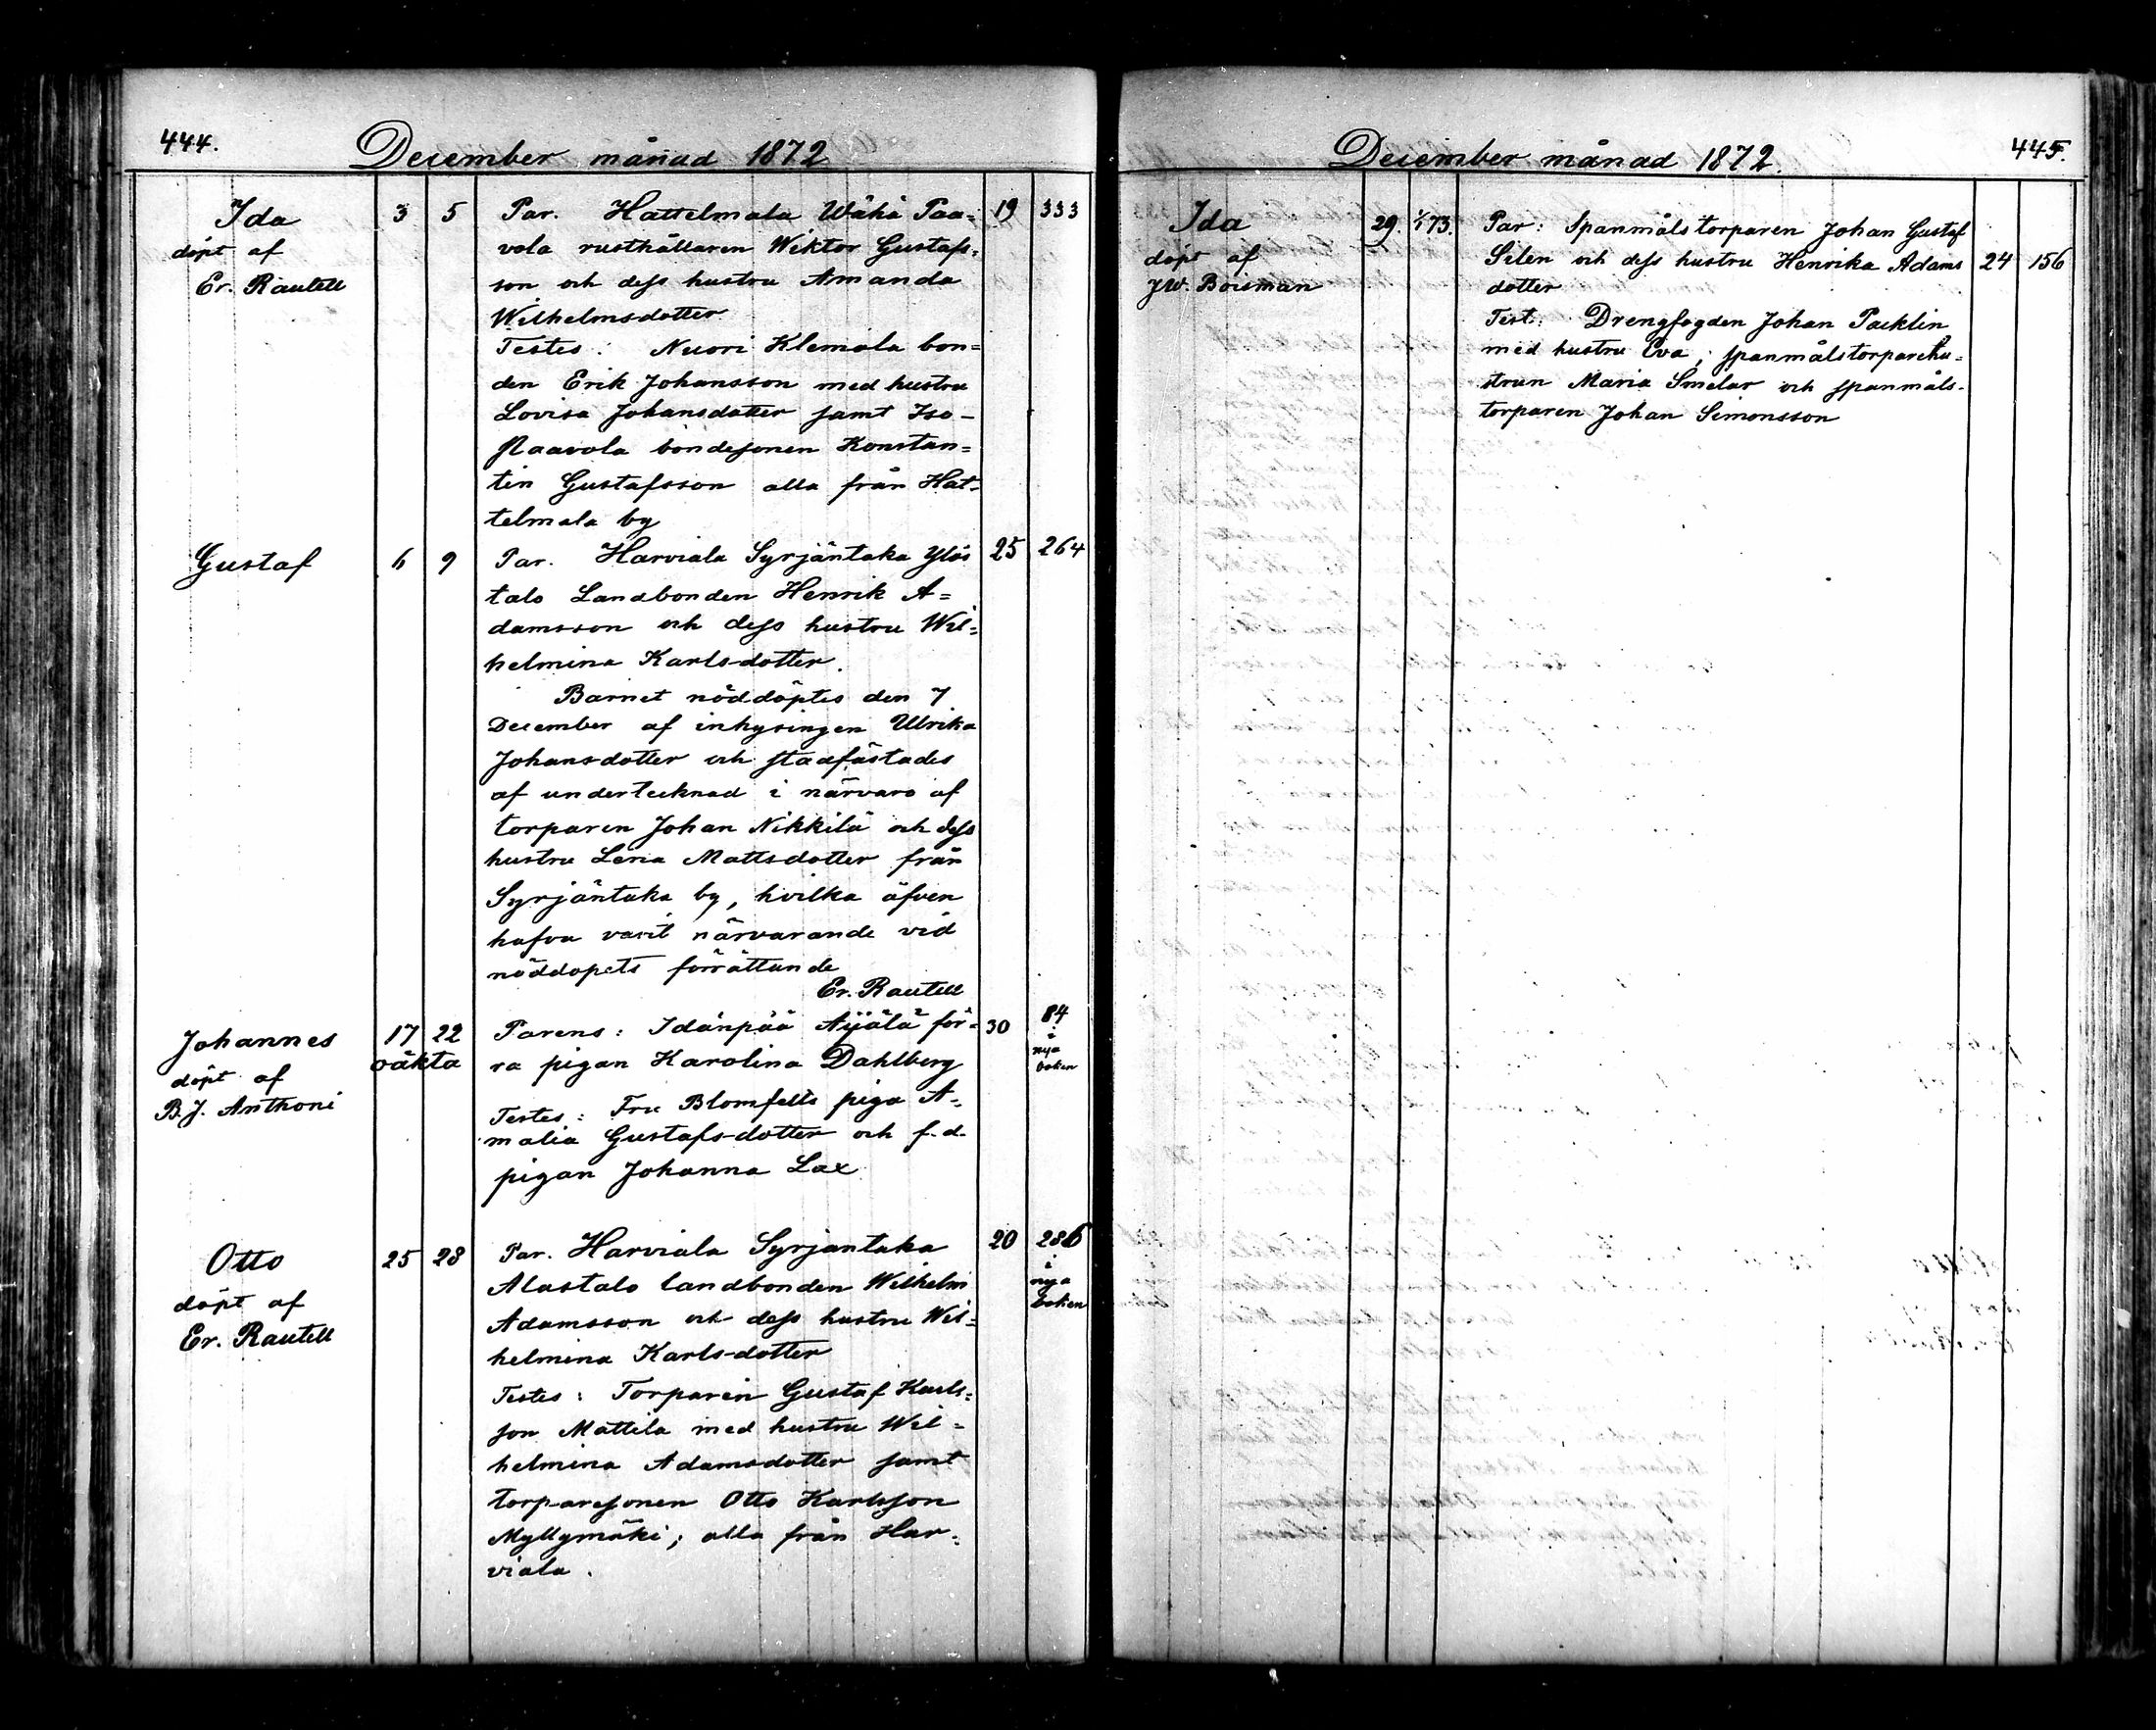 444.
December månad 1872
Ida 3 5 Par. Hattelmala Wähä Paa- 19 333
döpt af vola rusthållaren Wiktor Gustafs-
Er. Rautell son och dess hustru Amanda
Wilhelmsdotter
Testes: Nuori Klemola bon=
den Erik Johansson med hustru
Lovisa Johansdotter samt Iso-
Paavola bondesonen Konstan=
tin Gustafsson alla från Hat-
telmala by
Gustaf 6 9 Par. Harviala Syrjäntaka Ylös 25 264
talo Landbonden Henrik A=
damsson och dess hustru Wil=
helmina Karlsdotter.
Barnet nöddöptes den 7
December af inhysingen Ulrika
Johansdotter och stadfästades
af undertecknad i närvaro af
torparen Johan Nikkilä och dess
hustru Lena Mattsdotter från
Syrjäntaka by, hvilka äfven
hafva varit närvarande vid
nöddopets förrättande
Er. Rautell
Johannes 17 22 Parens: Idänpää Äijälä för- 30 84
oäkta ra pigan Karolina Dahlberg i nya boken
döpt af
B.J. Anthoni Testes: Fru Blomfelts piga A-
malia Gustafsdotter och f.d.
pigan Johanna Lax
Otto 25 28 Par. Harviala Syrjantaka 20 286
döpt af Alastalo landbonden Wilhelm i nya boken
Er. Rautell Adamsson och dess hustru Wil-
helmina Karlsdotter
Testes: Torparen Gustaf Karls-
son Mattila med hustru Wil-
helmina Adamsdotter samt
torparesonen Otto Karlsson
Myllymäki; alla från Har-
viala.
December månad 1872.
445.
Ida 29. 1/1 73. Par: Spanmålstorparen Johan Gustaf
döpt af Silen och dess hustru Henrika Adams 24 156
J.W. Boisman dotter
Test: Drengfogden Johan Packlin
med hustru Eva; spanmålstorparehu-
strun Maria Smelar och spanmåls-
torparen Johan Simonsson